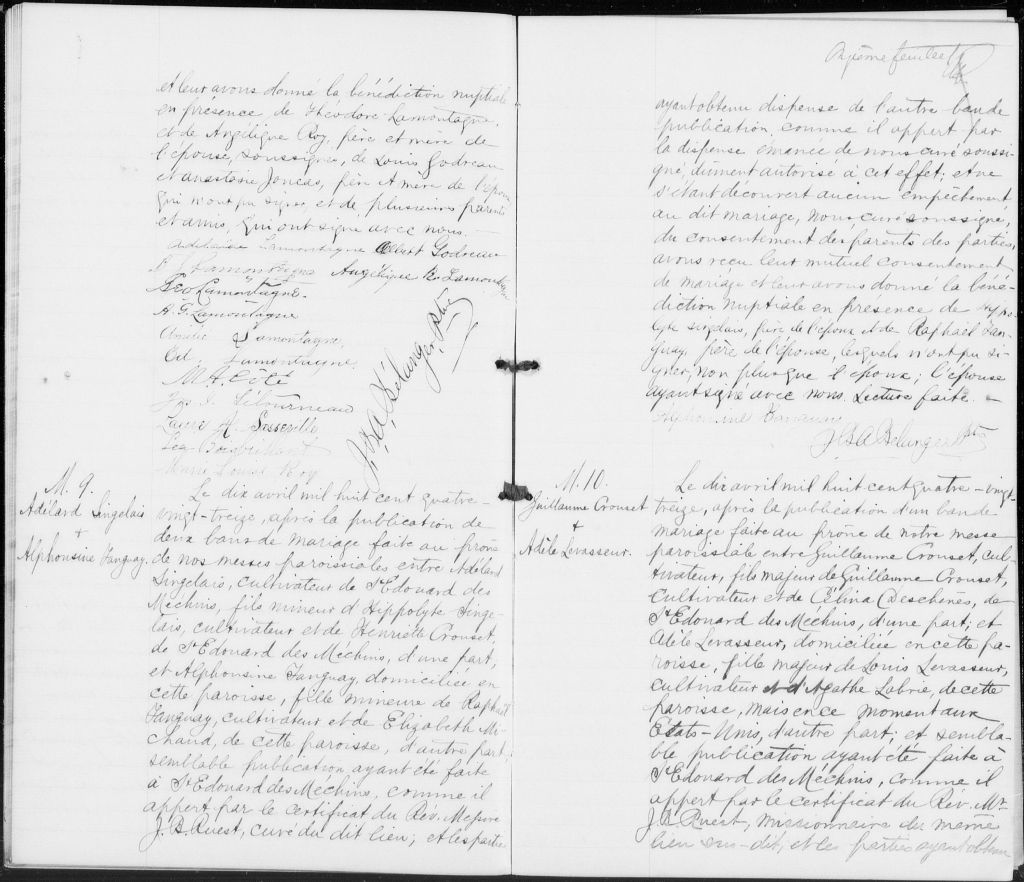 et leur avons donné la bénédiction nuptiale
en présence de Théodore Lamontagne,
et de Angélique Roy, père et mère de
l'épouse, soussignés, de Louis Godreau
et Anastasie Joncas, père et mère de l'époux
qui n'ont pu signer, et de plusieurs parents
et amis, qui ont signé avec nous. —
Lamontagne Albert Godreau
Lamontagne Angélique R. Lamontagne
Geo Lamontagne.
H. G. Lamontagne
Lamontagne,
Lamontagne.
M. A. Côté
Jos. Létourneau
Laure A. Sasseville
Léa
Marie Louise Roy
J. Bélanger, Ptre
M. 9.
Adélard Singelais
+
Alphonsine Tanguay.
Le dix avril mil huit cent quatre-
vingt-treize, après la publication de
deux bans de mariage faite au prône
de nos messes paroissiales entre Adélard
Singelais, cultivateur de St Edouard des
Méchins, fils mineur d'Hippolyte Singe-
lais, cultivateur et de Henriette Crouset,
de St Edouard des Méchins, d'une part,
et Alphonsine Tanguay, domiciliée en
cette paroisse, fille mineure de Raphaël
Tanguay, cultivateur et de Elizabeth Mi-
chaud, de cette paroisse, d'autre part,
semblable publication ayant été faite
à St Edouard des Méchins, comme il
appert par le certificat du Rév. Messire
J. B. Ruest, curé du dit lieu; et les parties
Onzième feuillet
ayant obtenu dispense de l'autre ban de
publication, comme il appert par
la dispense émanée de nous curé soussi-
gné, dûment autorisé à cet effet; et ne
s'étant découvert aucun empêchement
au dit mariage, nous curé soussigné,
du consentement des parents des parties,
avons reçu leur mutuel consentement
de mariage et leur avons donné la béné-
diction nuptiale en présence de Hippo-
lyte Singelais, père de l'époux et de Raphaël Tan-
guay, père de l'épouse, lesquels n'ont pu si-
gner, non plus que l'époux; l'épouse
ayant signé avec nous. Lecture faite. —
Alphonsine Tanguay
J. B. A. Bélanger Ptre
M. 10.
Guillaume Crouset
+
Adèle Levasseur.
Le dix avril mil huit cent quatre-vingt-
treize, après la publication d'un ban de
mariage faite au prône de notre messe
paroissiale entre Guillaume Crouset, cul-
tivateur, fils majeur de Guillaume Crouset,
cultivateur et de Célina Deschênes, de
St Edouard des Méchins, d'une part; et
Adèle Levasseur, domiciliée en cette pa-
roisse, fille majeur de Louis Levasseur,
cultivateur et d'Agathe Labrie, de cette
paroisse, mais en ce moment aux
Etats-Unis, d'autre part; et sembla-
ble publication ayant été faite à
St Edouard des Méchins, comme il
appert par le certificat du Rév. Mr
J. B. Ruest, missionnaire du même
lieu sus-dit; et les parties ayant obtenu